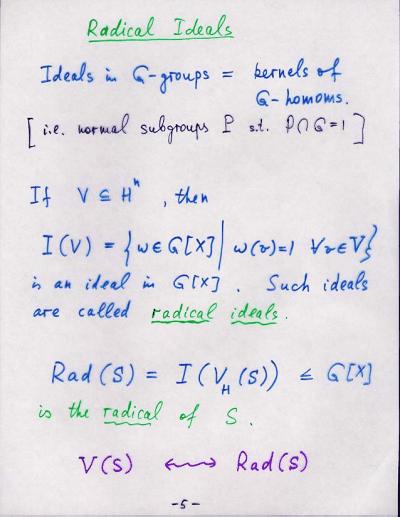 Radical Ideals
Ideals in G-groups = kernels of
G-homoms.
[i.e. normal subgroups P s.t. P∩G=1]
If V ⊆ Hⁿ, then
I(V) = {w∈G[X] | w(v)=1 ∀v∈V}
is an ideal in G[X]. Such ideals
are called radical ideals.
Rad(S) = I(V_H(S)) ≤ G[X]
is the radical of S.
V(S) ⟷ Rad(S)
-5-